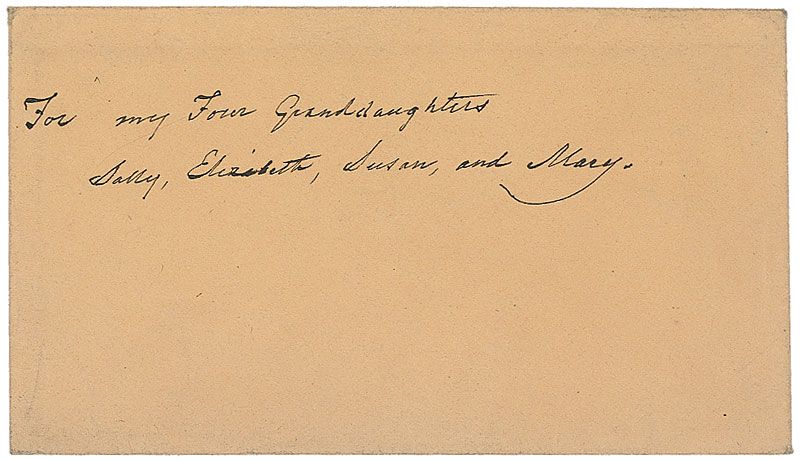 For my Four Granddaughters
Sally, Elizabeth, Susan, and Mary.